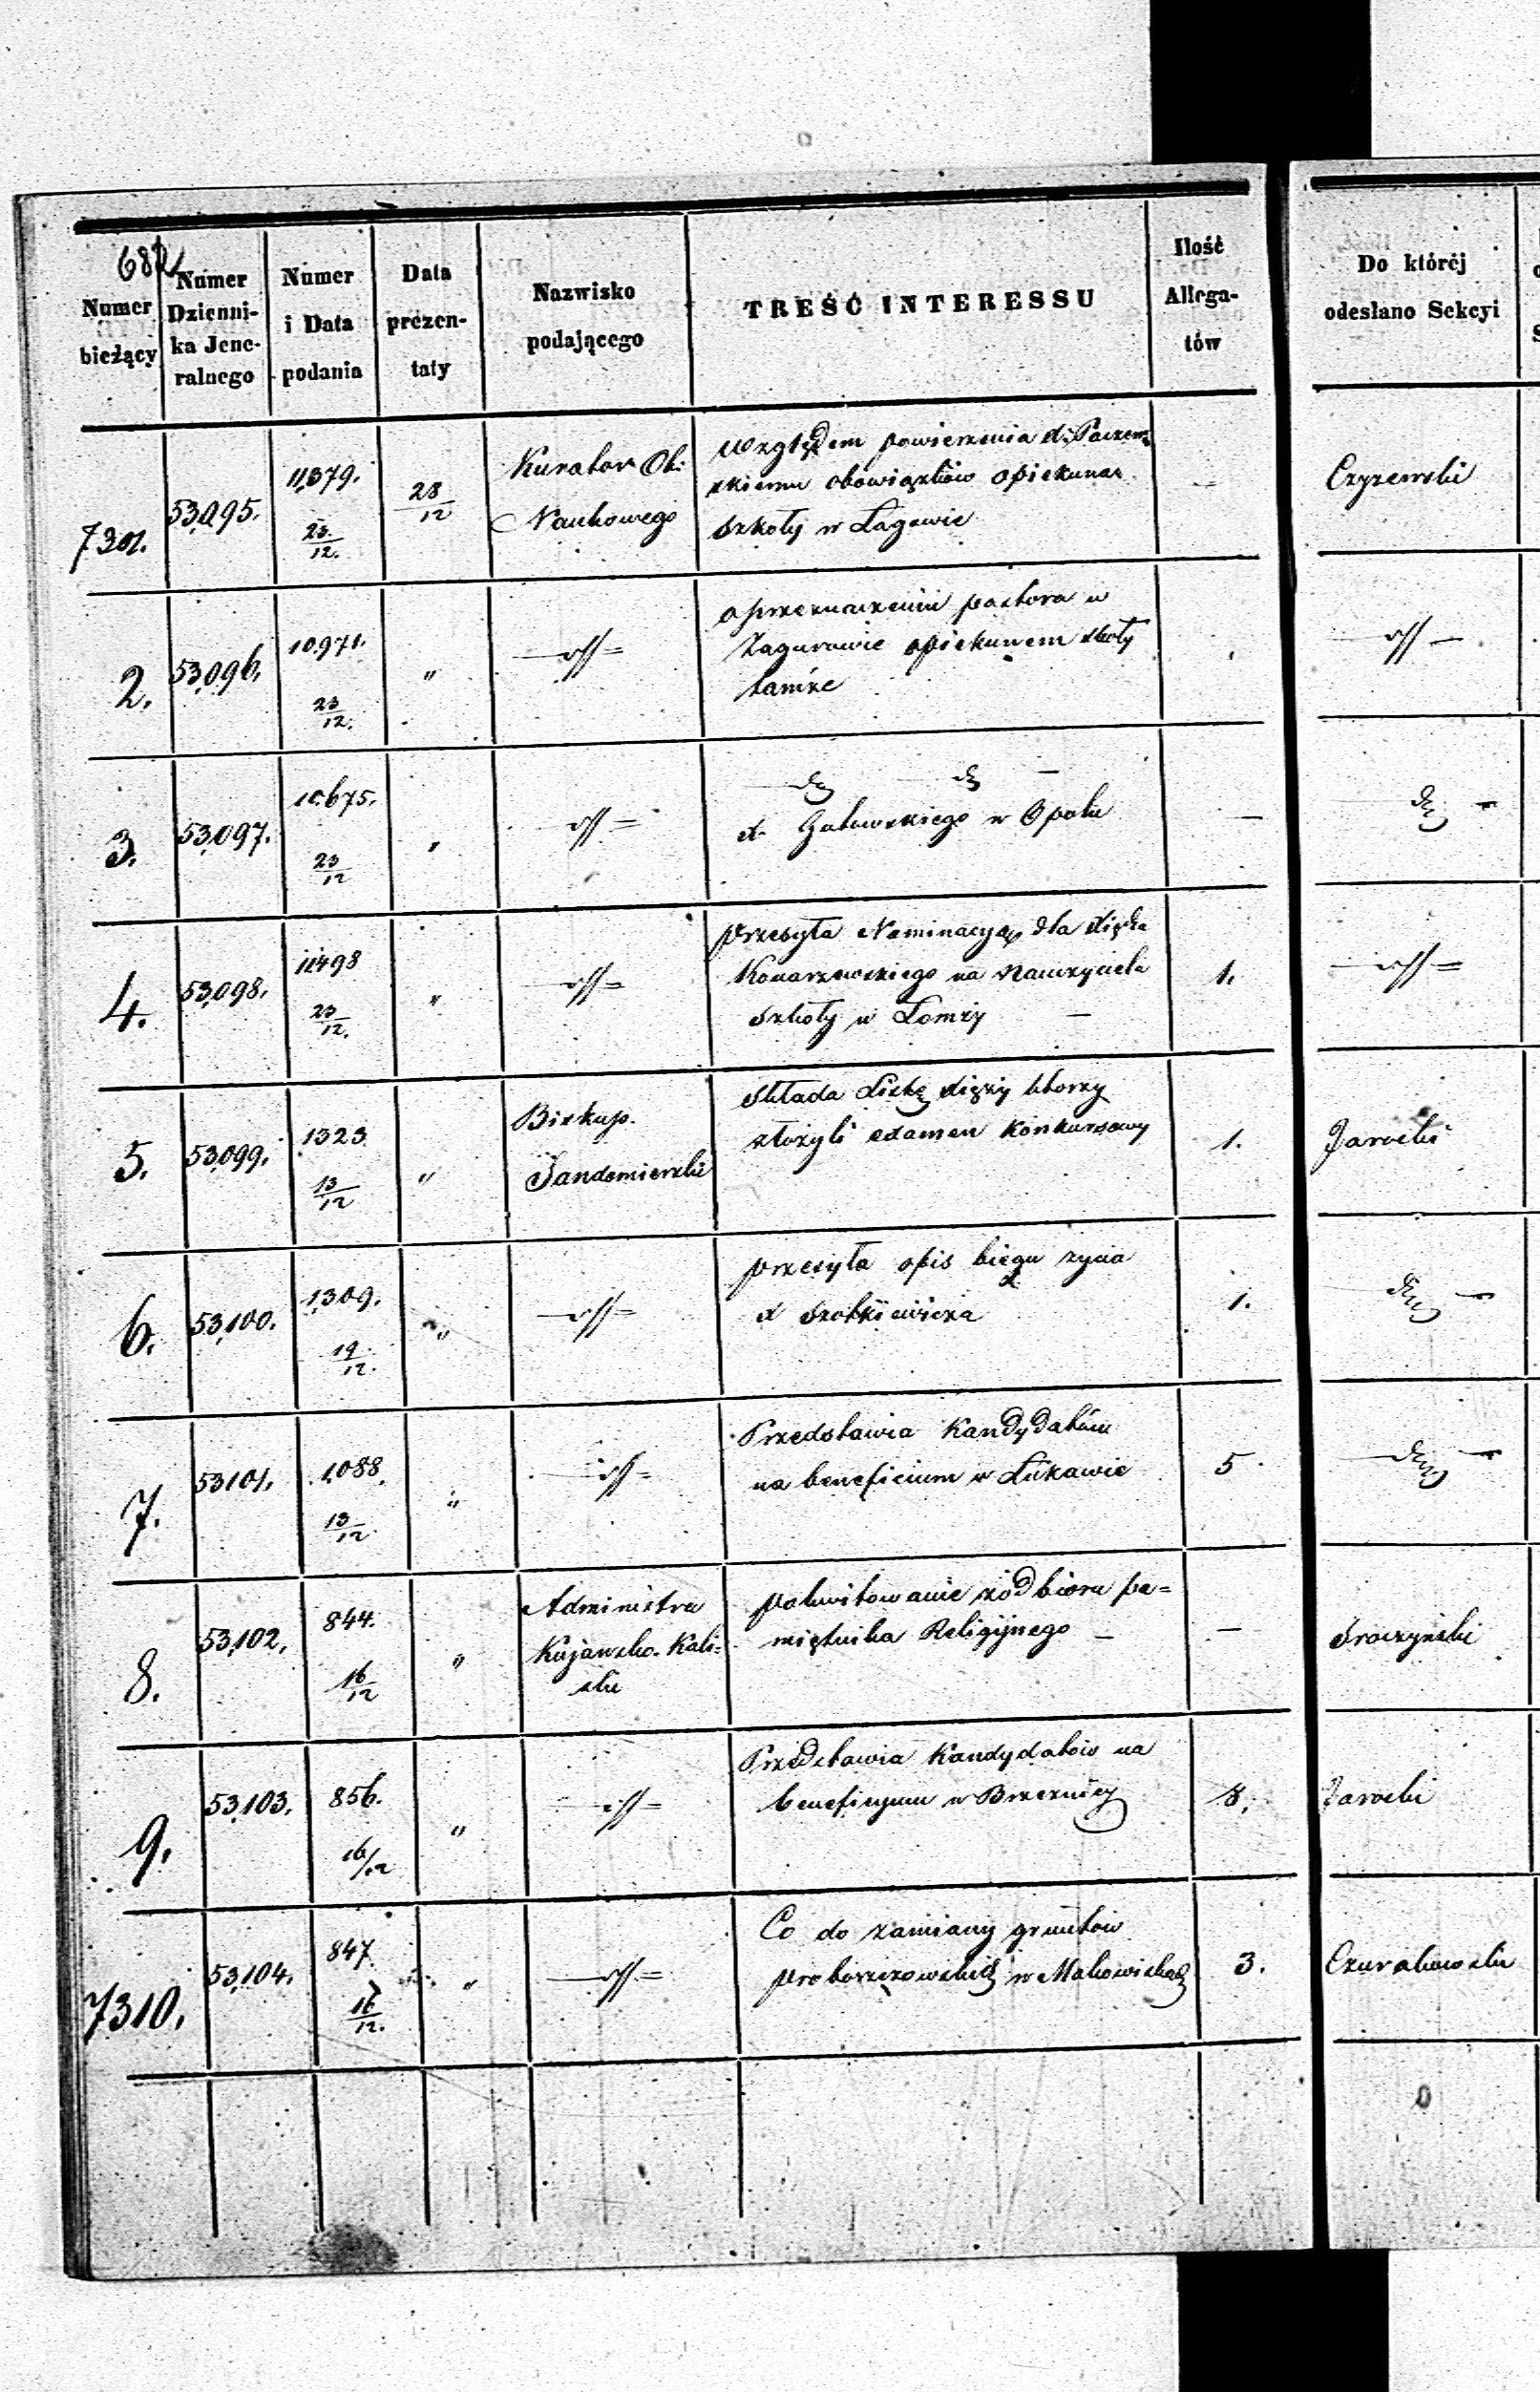 682
Numer bieżący
Numer Dzienni- ka Jene- ralnego
Numer i Data podania
Data prezen- taty
Nazwisko podającego
TREŚĆ INTERESSU
Ilość Allega- tów
Do któréj odesłano Sekcyi
7301. 53,095. 11,379. 23/12. 28/12 Kurator Ok: Naukowego
Względem powierzenia
skiemu obowiązków opiekuna
szkoły w Łagowie
Czyżewski
2. 53,096. 10,971. 23/12. "
o przeznaczeniu pastora w
Zagurowie opiekunem szkoły
tamże
3. 53,097. 10,675. 23/12 "
X. Gutowskiego w Opolu —
4. 53,098. 11,498 23/12. "
przesyła Nominacyą dla Xiędza
Konarzewskiego na Nauczyciela
szkoły w Łomży — 1.
5. 53,099. 1323 13/12 " Biskup. Sandomierski
Składa Listę Xięży którzy
złożyli examen konkursowy 1. Jarocki
6. 53,100. 1,309. 19/12. "
przesyła opis biegu życia
X 1.
7. 53101. 1,088. 13/12. "
Przedstawia Kandydatów
na beneficium w Łukawie 5
8. 53,102. 844. 16/12 " Administra Kujawsko-Kali= ski
pokwitowanie z odbioru pa=
miętnika Religijnego — —
9. 53,103. 856. 16/12 "
Przedstawia Kandydatów na
beneficyum w Brzeźnicy Jarocki
7310. 53,104. 847 16/12. "
Co do zamiany gruntów
proboszczowskich w Makowiskach 3.